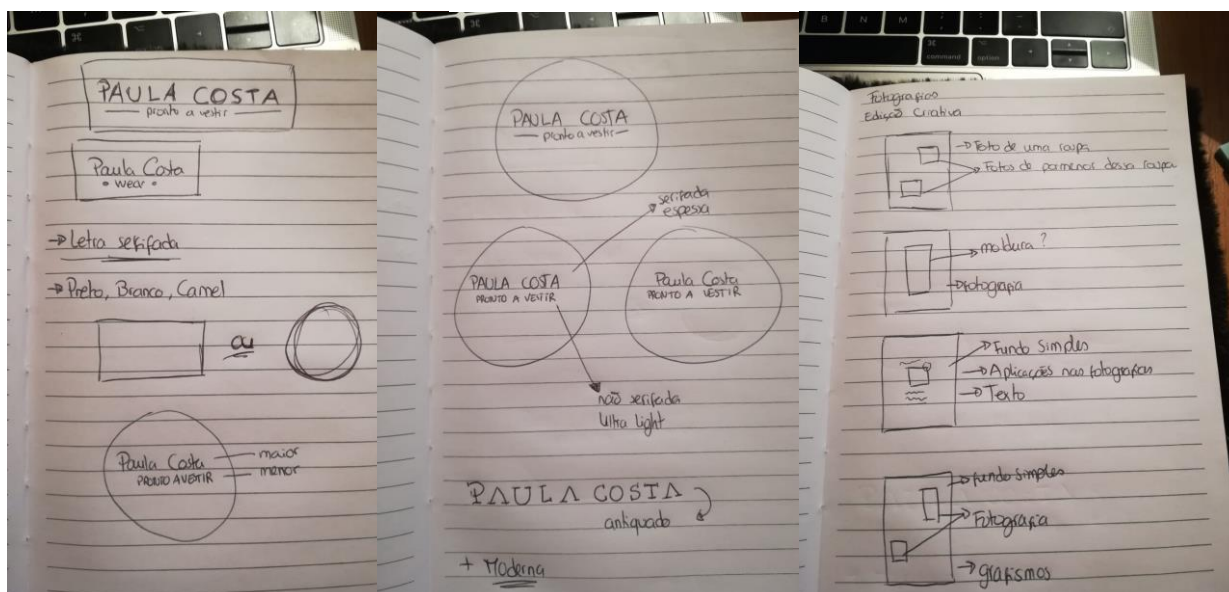 PAULA COSTA
pronto a vestir
Paula Costa
• wear •
→ Letra serifada
→ Preto, Branco, Camel
ou
Paula Costa
PRONTO A VESTIR
maior
menor
PAULA COSTA
pronto a vestir
serifada
espessa
PAULA COSTA
PRONTO A VESTIR
Paula Costa
PRONTO A VESTIR
não serifada
Ultra Light
PAULA COSTA
antiquado
+ Moderna
B N M
⌘
command option
Fotografias
Edição Criativa
→ Foto de uma roupa
→ Fotos de pormenor dessa roupa
→ moldura?
→ Fotografia
→ Fundo Simples
→ Aplicações nas fotografias
→ Texto
→ fundo simples
→ Fotografia
→ grafismos